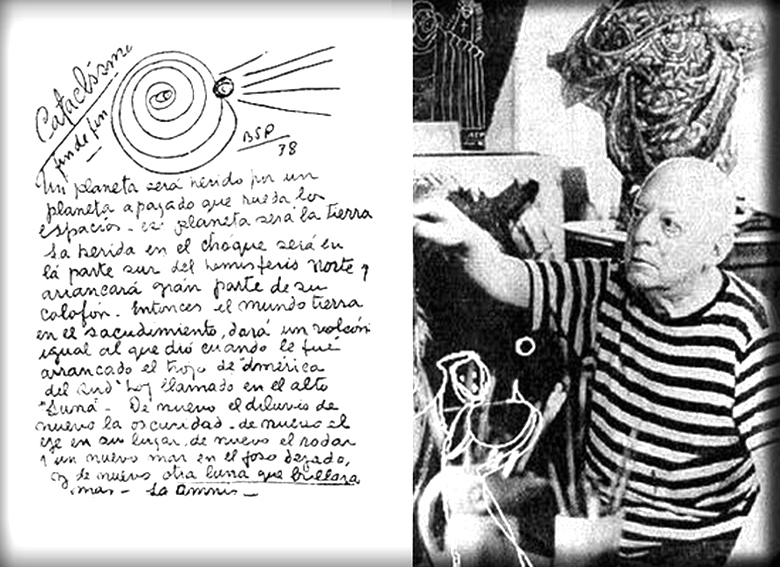 Cataclismo
fin de fin
BSP
38
Un planeta será herido por un
planeta apagado que rueda los
espacios - ese planeta será la tierra
La herida en el choque será en
la parte sur del hemisferio Norte y
arrancará gran parte de su
colofón. Entonces el mundo tierra
en el sacudimiento, dará un volcón
igual al que dió cuando le fué
arrancado el trozo de "América
del Sud" hoy llamado en el alto
"Luna" - De nuevo el diluvio de
nuevo la oscuridad - de nuevo el
eje en su lugar, de nuevo el rodar
y un nuevo mar en el foso dejado,
y de nuevo otra luna que brillara
mas -